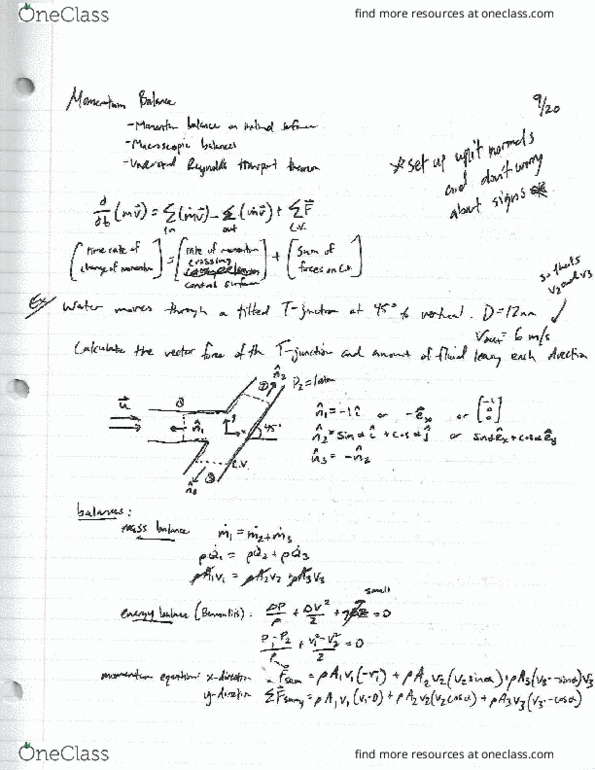 OneClass
find more resources at oneclass.com
Momentum Balance
9/20
- Momentum balance on surfaces
- Macroscopic balances
- Understand Reynolds transport theorem
* set up unit normals
and don't worry
about signs
d/dt (mv⃗) = Σ_in (ṁv⃗) - Σ_out (ṁv⃗) + Σ_C.V. F⃗
[time rate of change of momentum] = [rate of momentum crossing control surface] + [sum of forces on C.V.]
so that's
v2 and v3
Ex/ Water moves through a tilted T-junction at 45° to vertical. D = 12mm
Vout = 6 m/s
Calculate the vector force of the T-junction and amount of fluid leaving each direction
n̂2
② P2 = 1atm
u⃗ ① n̂1 y x 45°
C.V.
n̂3 ③
n̂1 = -1î or -êx or [-1 0 0]
n̂2 = sinα î + cosα ĵ or sinα êx + cosα êy
n̂3 = -n̂2
balances:
mass balance ṁ1 = ṁ2 + ṁ3
ρQ1 = ρQ2 + ρQ3
ρA1v1 = ρA2v2 + ρA3v3
small
energy balance (Bernoulli's): ΔP/ρ + Δv²/2 + gΔz = 0
(P1-P2)/ρ + (v1²-v2²)/2 = 0
momentum equation: x-direction
y-direction
find more resources at oneclass.com
OneClass